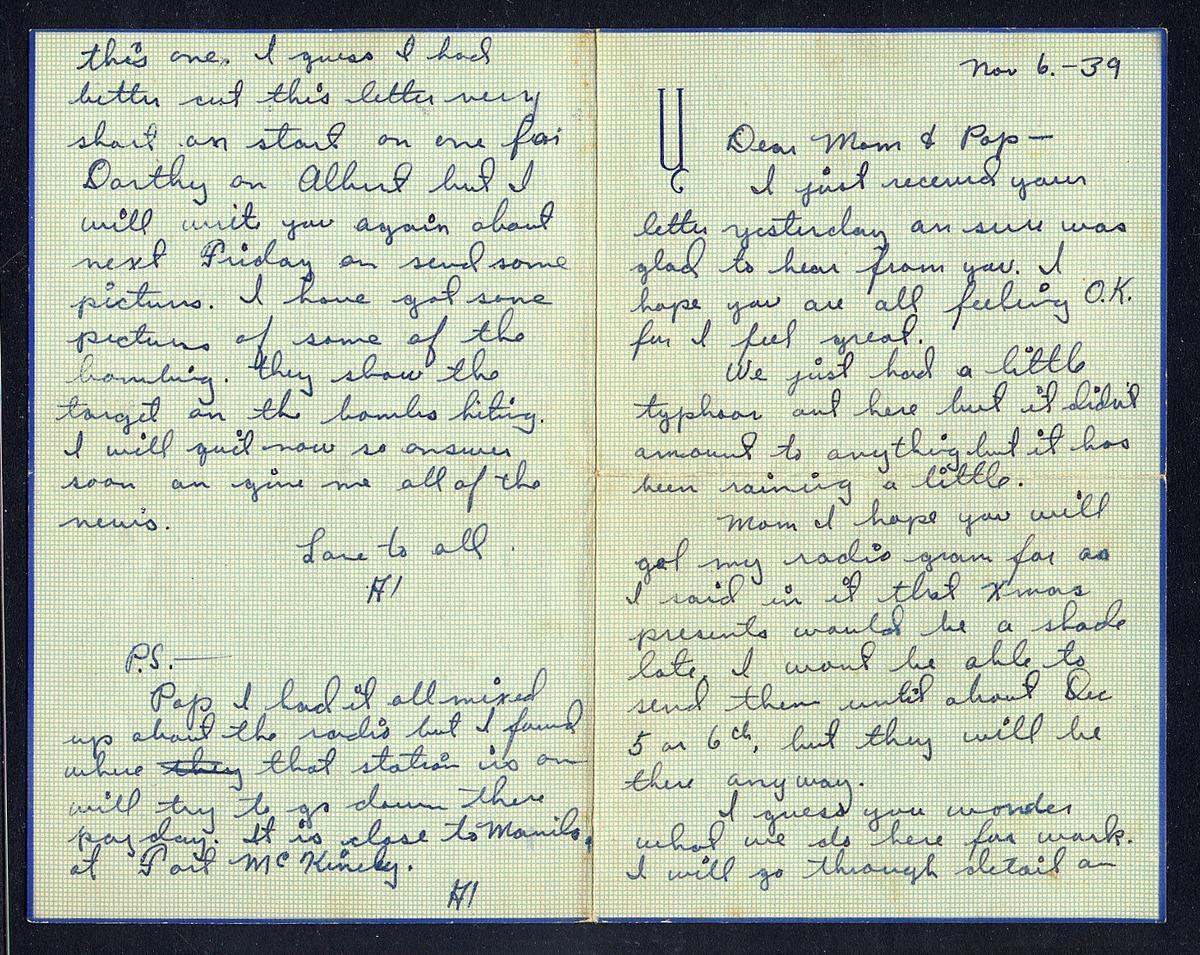 Nov 6.-39
Dear Mom & Pop—
I just received your
letter yesterday an sure was
glad to hear from you. I
hope you are all feeling O.K.
for I feel great.
We just had a little
typhoon out here but it didn't
amount to anything but it has
been raining a little.
Mom I hope you will
got my radio gram for as
I said in it that Xmas
presents would be a shade
late. I wont be able to
send them until about Dec
5 or 6th, but they will be
there any way.
I guess you wonder
what we do here for work.
I will go through detail an
this one. I guess I had
better cut this letter very
short an start on one for
Dorthy an Albert but I
will write you again about
next Friday an send some
pictures. I have got some
pictures of some of the
bombing. they show the
target an the bombs hiting.
I will quit now so answer
soon an give me all of the
news.
Love to all.
Al
P.S.—
Pop I had it all mixed
up about the radio but I found
where they that station is an
will try to go down there
payday. It is close to Manila.
at Fort McKinley.
Al